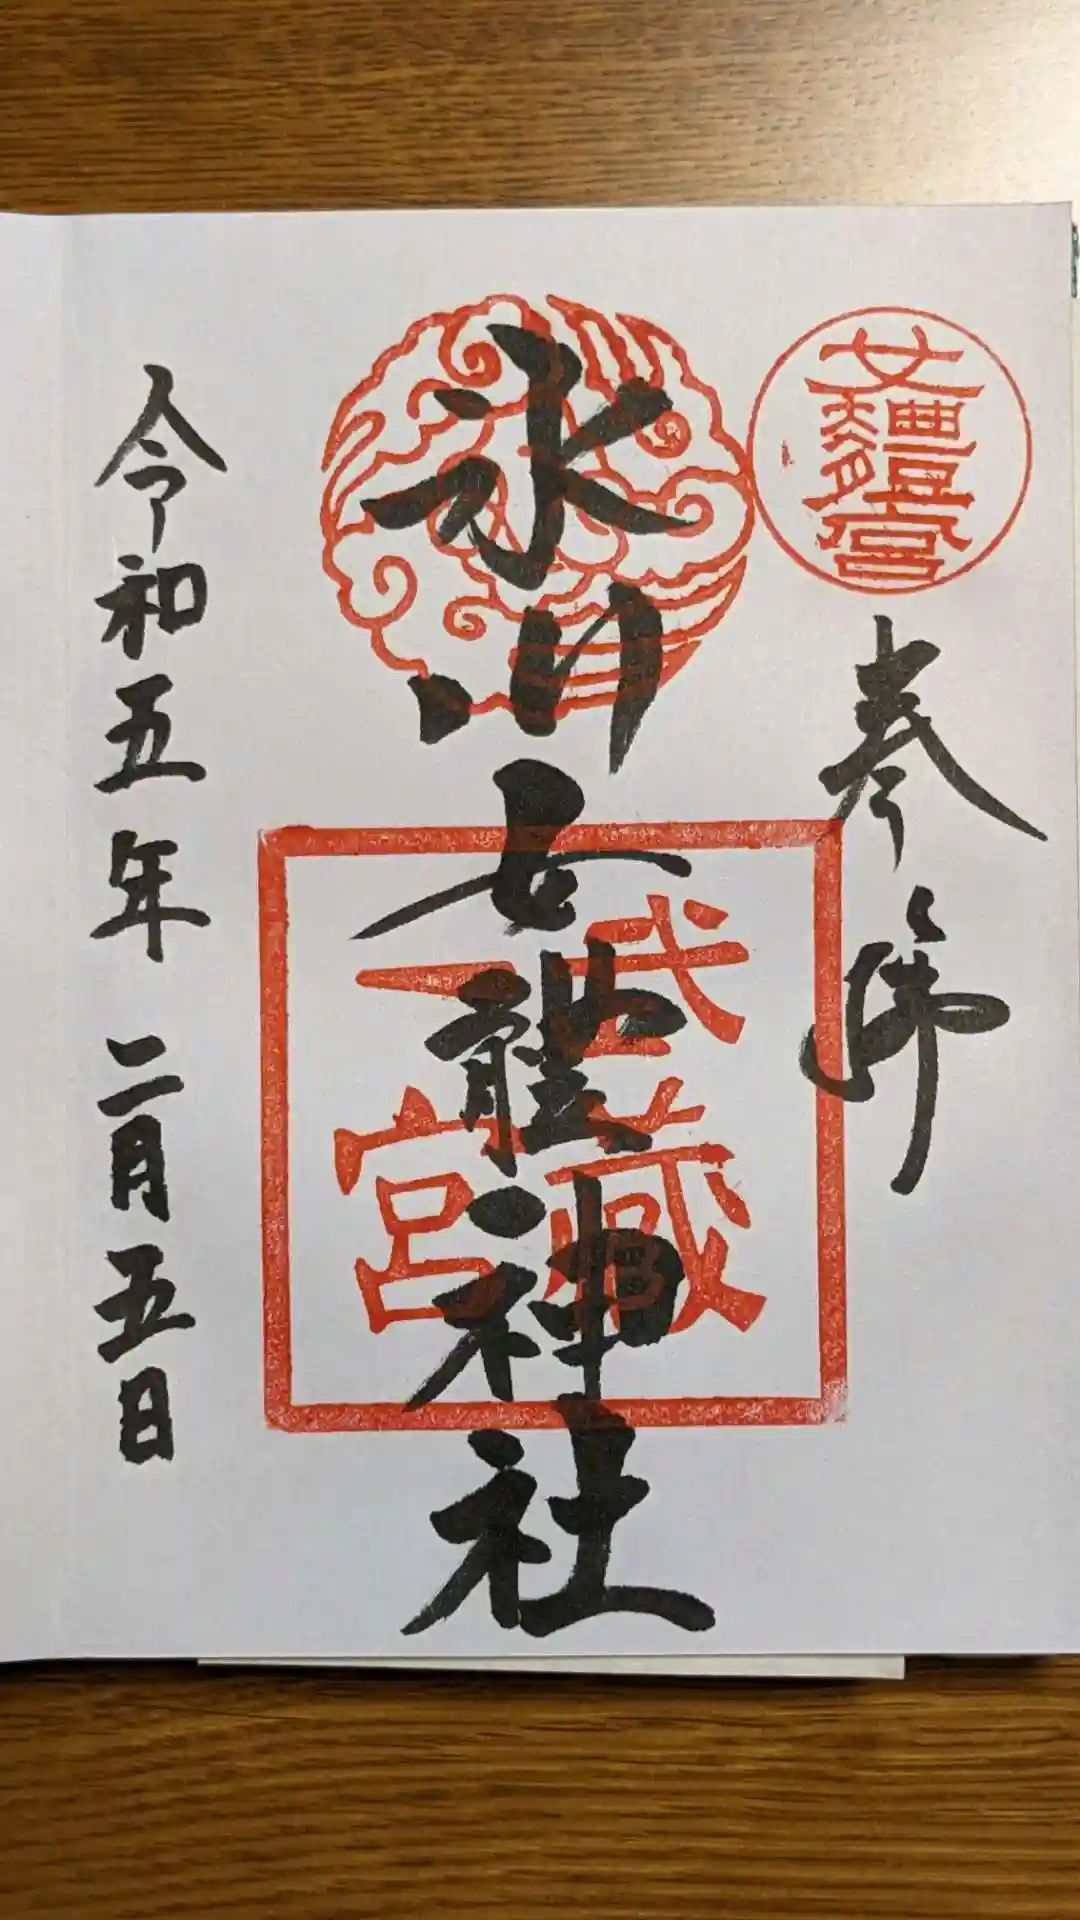 女體宮
奉拝
氷川女體神社
武蔵
一宮
令和五年二月五日